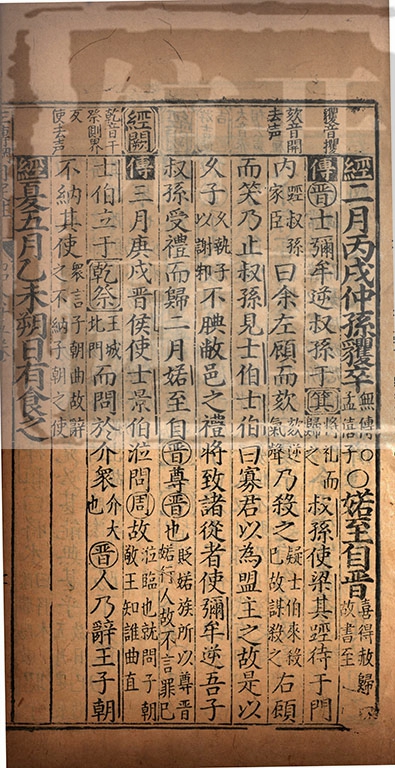 貜音攫
經二月丙戌仲孫貜卒無傳孟僖子〇〇婼至自晉喜得赦歸故書至
傳晉士彌牟逆叔孫于箕將礼而歸之叔孫使梁其踁待于門
欬音開去声
內踁叔孫家臣曰余左顧而欬欬逆氣聲乃殺之疑士伯來殺己故謀殺之右顧
而笑乃止叔孫見士伯士伯曰寡君以為盟主之故是以
久子久執子以謝邾不腆敝邑之禮將致諸從者使彌牟逆吾子
叔孫受禮而歸二月婼至自晉尊晉也貶婼族所以尊晉婼行人故不言罪己
經闕
傳三月庚戌晉侯使士景伯涖問周故涖臨也就問子朝敬王知誰曲直
乾音干祭側界反
士伯立于乾祭王城北門而問於介衆介大也晉人乃辭王子朝
使去声
不納其使衆言子朝曲故辭之不納子朝之使
經夏五月乙未朔日有食之